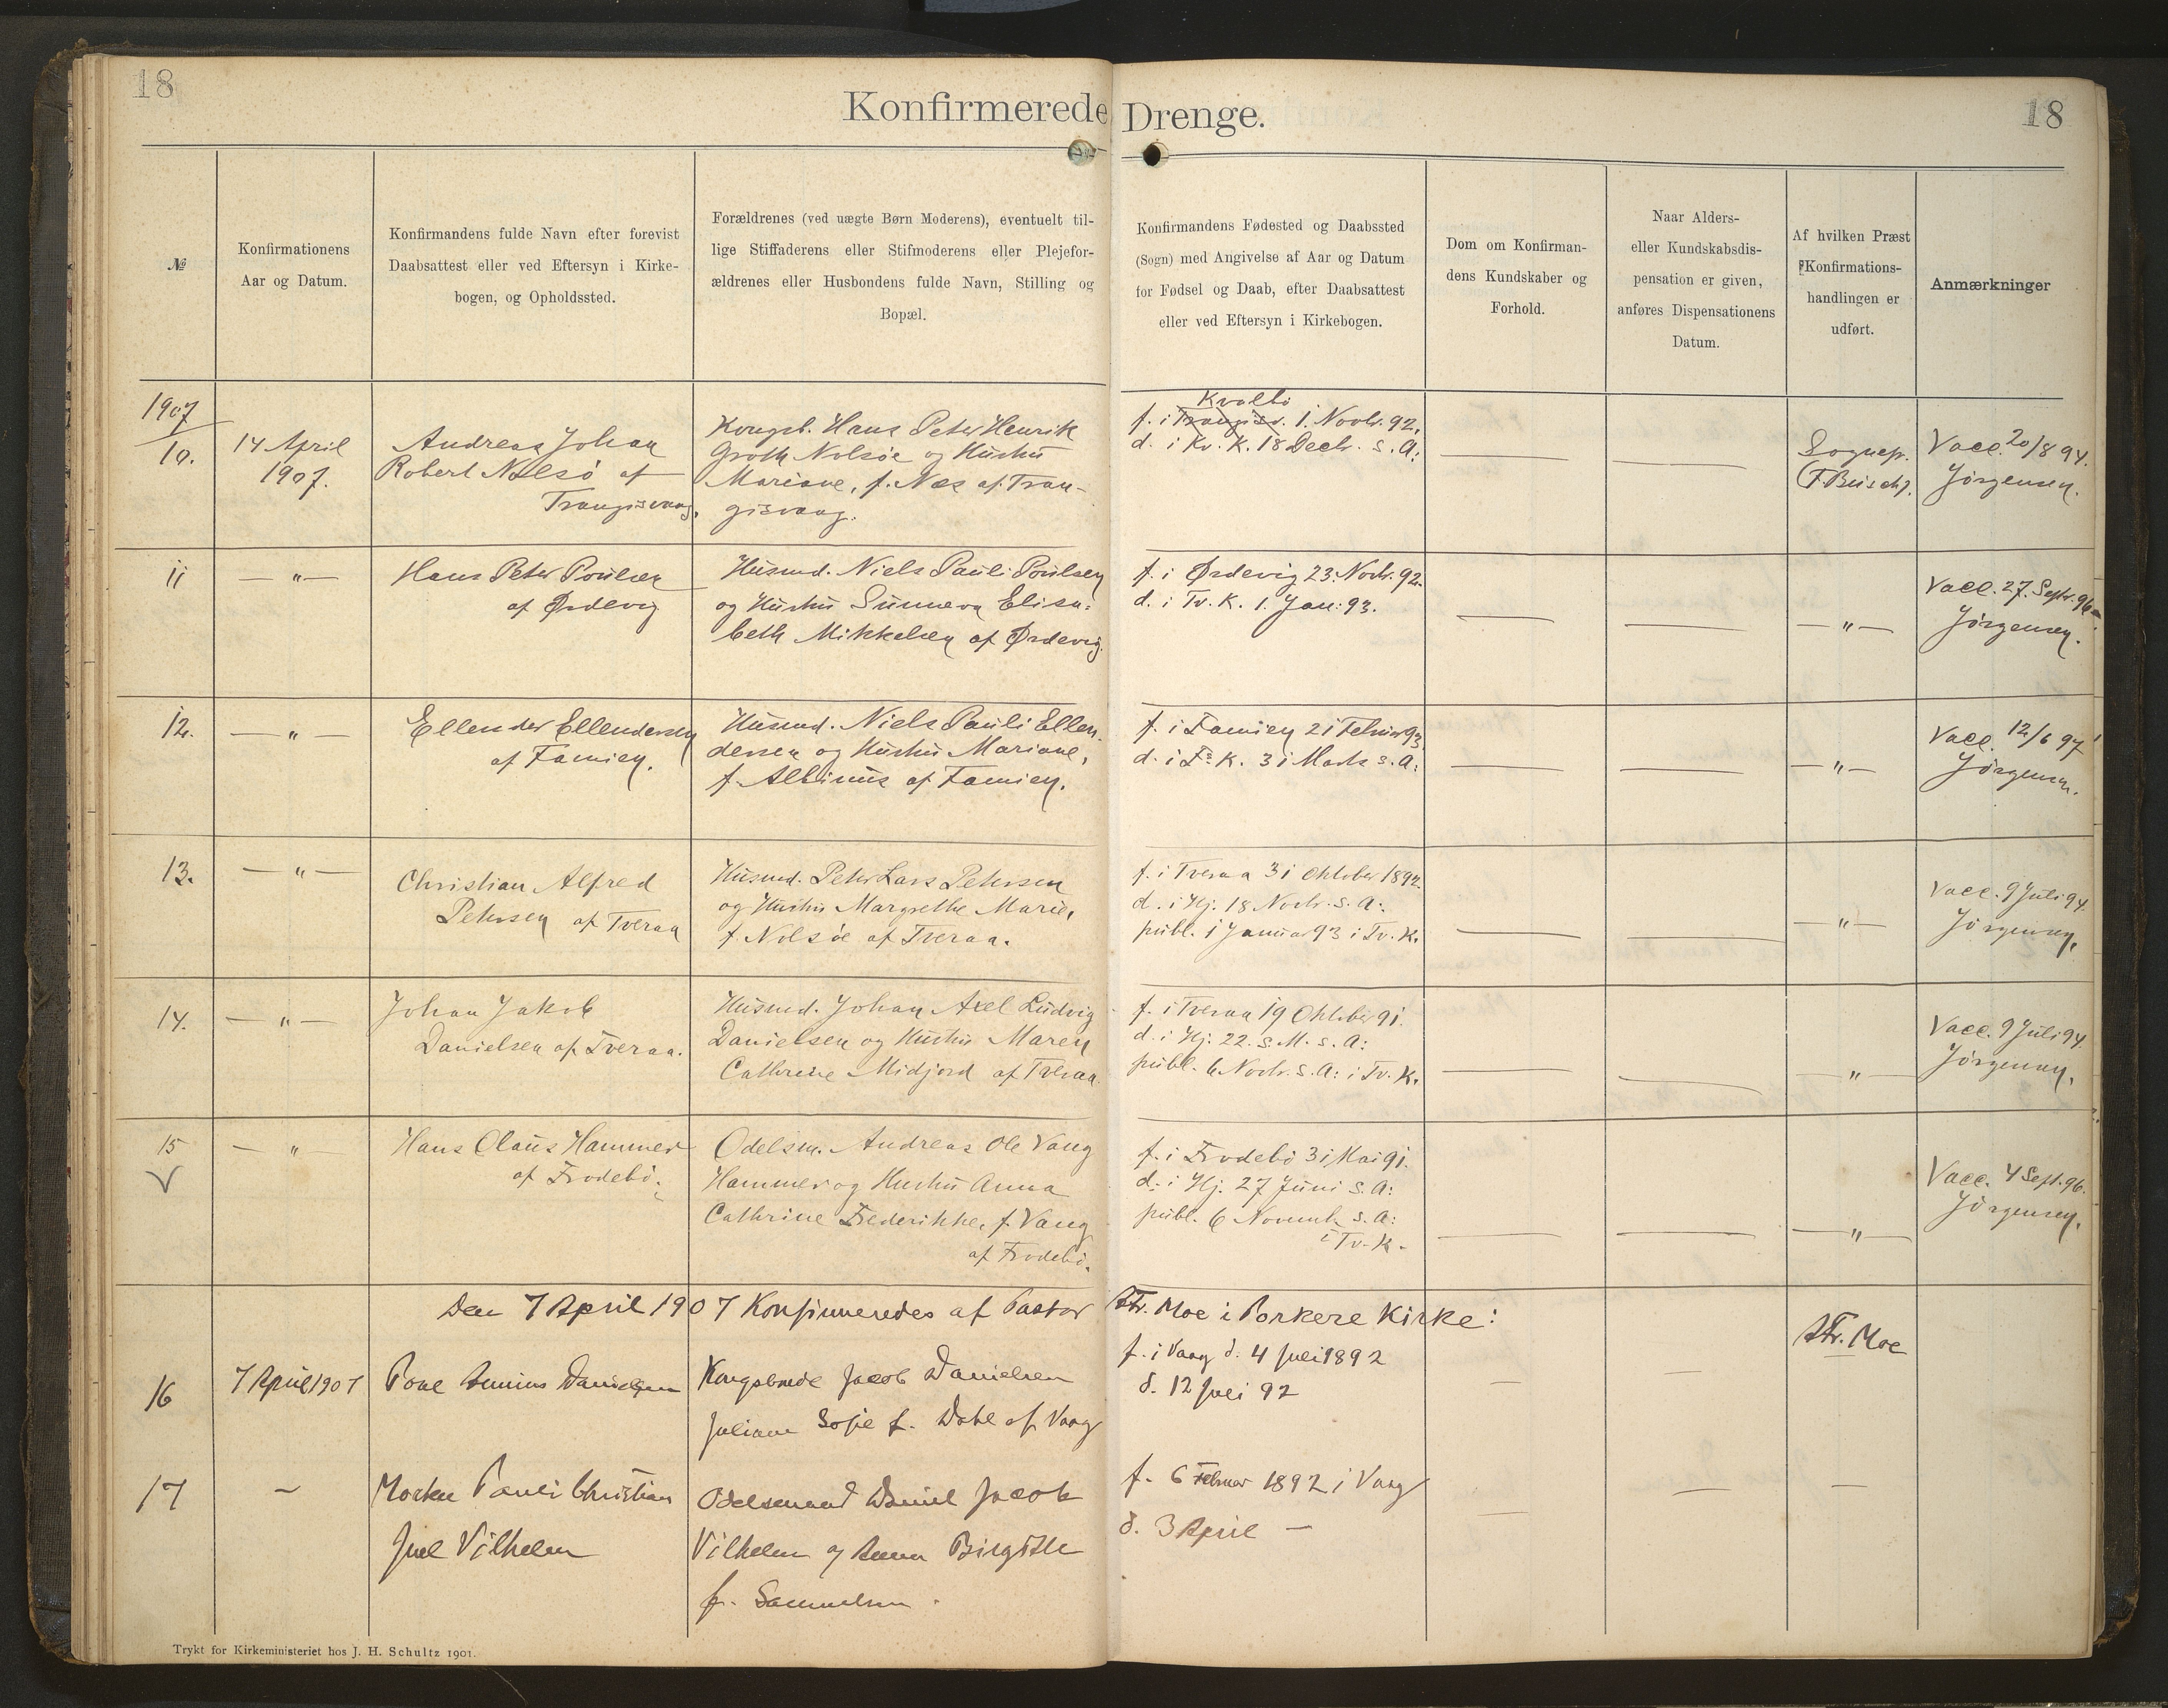 18
Konfirmerede Drenge.
18
№
Konfirmationens
Aar og Datum.
Konfirmandens fulde Navn efter forevist
Daabsattest eller ved Eftersyn i Kirke-
bogen, og Opholdssted.
Forældrenes (ved uægte Børn Moderens), eventuelt til-
lige Stiffaderens eller Stifmoderens eller Plejefor-
ældrenes eller Husbondens fulde Navn, Stilling og
Bopæl.
Konfirmandens Fødested og Daabssted
(Sogn) med Angivelse af Aar og Datum
for Fødsel og Daab, efter Daabsattest
eller ved Eftersyn i Kirkebogen.
Dom om Konfirman-
dens Kundskaber og
Forhold.
Naar Alders-
eller Kundskabsdis-
pensation er given,
anføres Dispensationens
Datum.
Af hvilken Præst
Konfirmations-
handlingen er
udført.
Anmærkninger
1907
10.
14 April
1907.
Andreas Johan
Robert Nolsö af
Trangisvaag.
Kongsb. Hans Peter Henrik
Groth Nolsöe og Hustru
Mariane, f. Næs af Tran-
gisvaag.
Kvalbö
f. i Trangisv. 1. Novbr. 92.
d. i Kv. K. 18 Decbr. s. A:
Sognep.
F. Busch.
Vacc. 20/8 94.
Jörgensen.
11
— " —
Hans Peter Poulsen
af Ørdevig
Husmd. Niels Pauli Poulsen
og Hustru Sunneva Elisa:
beth Mikkelsen af Ørdevig.
f. i Ørdevig 23. Novbr. 92.
d. i Tv. K. 1. Jan: 93.
— " —
Vacc. 27. Septr. 96
Jörgensen.
12.
— " —
Ellender Ellendersen
af Famien.
Husmd. Niels Pauli Ellen
dersen og Hustru Mariane,
f. Albinus af Famien.
f. i Famien 21 Februar 93
d. i Fs K. 31 Marts s. A:
— " —
Vacc. 12/6 97
Jörgensen.
13.
— " —
Christian Alfred
Petersen af Tveraa
Husmd. Peter Lars Petersen
og Hustru Margrethe Marie,
f. Nolsöe af Tveraa.
f. i Tveraa 31 Oktober 1892.
d. i Hj. 18 Novbr. s. A:
publ. 1 Januar 93 i Tv. K.
— " —
Vacc. 9 Juli 94.
Jörgensen.
14.
— " —
Johan Jakob
Danielsen af Tveraa.
Husmd. Johan Axel Ludvig
Danielsen og Hustru Maren
Cathrine Midjord af Tveraa.
f. i Tveraa 19 Oktober 91.
d. i Hj. 22. s. M. s. A:
publ. 6 Novbr. s. A: i Tv. K.
— " —
Vacc. 9 Juli 94.
Jörgensen.
15
— " —
Hans Claus Hammer
af Frodebö.
Odelsm. Andreas Ole Vang
Hammer og Hustru Anna
Cathrine Frederikke, f. Vang
af Frodebö.
f. i Frodebö 31 Mai 91.
d. i Hj. 27 Juni s. A:
publ. 6 Novemb. s. A:
i Tv. K.
— " —
Vacc. 4 Sept. 96.
Jörgensen.
Den 7 April 1907 Konfirmeredes af Pastor Fr. Moe i Porkere Kirke:
16
7 April 1907
Poul Danielsen
Kongsbonde Jacob Danielsen
Juliane Sofie f. Dahl af Vaag
f. i Vaag d. 4 Juli 1892
d. 12 Juli 92
Fr. Moe
17
—
Morten Pauli Christian
Juel Vilhelm
Odelsmand Daniel Jacob
Vilhelm og Anna Birgitte
f. Samuelsen.
f. 6 Februar 1892 i Vaag
d. 3 April —
Trykt for Kirkeministeriet hos J. H. Schultz 1901.